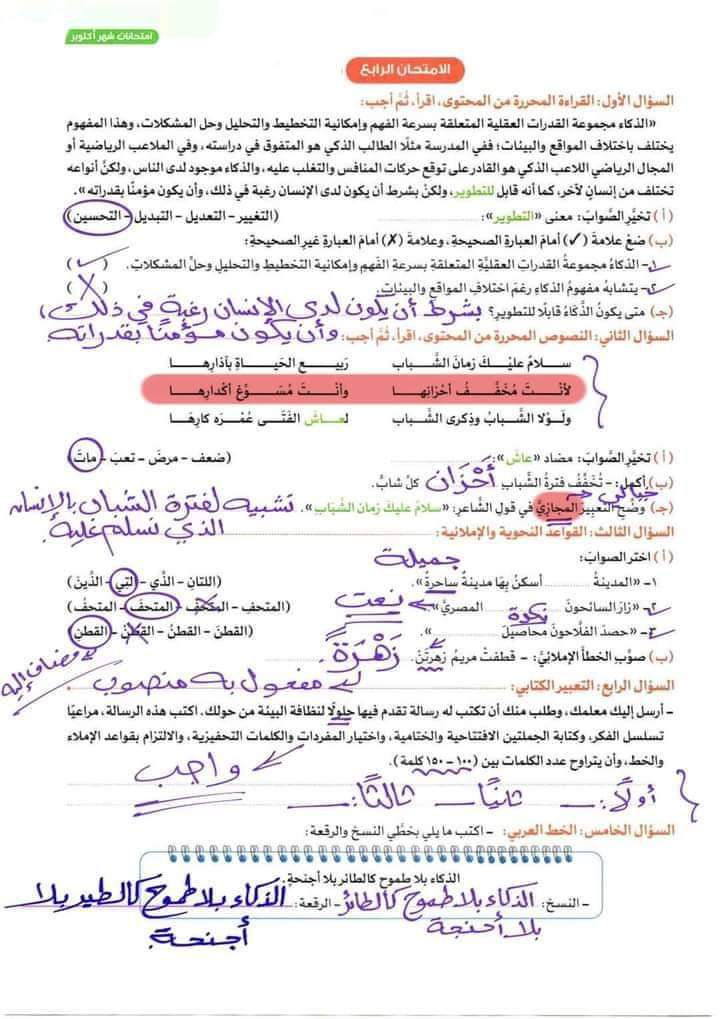 امتحانات شهر أكتوبر
الامتحان الرابع
السؤال الأول: القراءة المحررة من المحتوى، اقرأ، ثُمَّ أجب:
«الذكاء مجموعة القدرات العقلية المتعلقة بسرعة الفهم وإمكانية التخطيط والتحليل وحل المشكلات، وهذا المفهوم
يختلف باختلاف المواقع والبيئات؛ ففي المدرسة مثلًا الطالب الذكي هو المتفوق في دراسته، وفي الملاعب الرياضية أو
المجال الرياضي اللاعب الذكي هو القادر على توقع حركات المنافس والتغلب عليه، والذكاء موجود لدى الناس، ولكنَّ أنواعه
تختلف من إنسان لآخر، كما أنه قابل للتطوير، ولكنْ بشرط أن يكون لدى الإنسان رغبة في ذلك، وأن يكون مؤمنًا بقدراته».
(أ) تخيَّر الصَّوابَ: معنى «التطوير»: (التغيير - التعديل - التبديل - التحسين)
(ب) ضعْ علامةَ (✓) أمامَ العبارةِ الصحيحةِ، وعلامةَ (✗) أمامَ العبارةِ غيرِ الصحيحةِ:
١- الذكاءُ مجموعةُ القدراتِ العقليَّةِ المتعلقةِ بسرعةِ الفهمِ وإمكانيةِ التخطيطِ والتحليلِ وحلِّ المشكلاتِ. (✓)
٢- يتشابهُ مفهومُ الذكاءِ رغمَ اختلافِ المواقعِ والبيئاتِ. (✗)
(جـ) متى يكونُ الذَّكاءُ قابلًا للتطويرِ؟ بشرط أن يكون لدى الإنسان رغبة في ذلك،
وأن يكون مؤمنًا بقدراته.
السؤال الثاني: النصوص المحررة من المحتوى، اقرأ، ثُمَّ أجب:
سـلامٌ عليْـكَ زمـانَ الشَّـبـاب ربيـعِ الحَيـاةِ بآذارِهـا
لأنْـتَ مُخَفِّـفُ أحْزانِهـا وأنْـتَ مُسَـوِّغُ أكْدارِهـا
ولَـوْلا الشَّـبابُ وذِكرى الشَّبابِ لعاشَ الفَتَى عُمْرَه كارِهَـا
(أ) تخيَّرِ الصَّوابَ: مضاد «عاش»: (ضعف - مرضَ - تعبَ - ماتَ)
(ب) أكمل: - تُخَفِّفُ فترةُ الشَّبابِ أَحْزَان كلَّ شابٍّ.
خيالي
(جـ) وضِّحِ التعبيرَ المجازيَّ في قول الشَّاعرِ: «سلامٌ عليكَ زمانَ الشَّبَابِ». تشبيه لفترة الشباب بالإنسان
الذي نسلم عليه.
السؤال الثالث: القواعد النحوية والإملائية:
(أ) اختر الصوابَ:
جميلة
١- «المدينةُ أسكنُ بِهَا مدينةٌ ساحرةٌ». (اللتان - الَّذي - الَّتِي - الَّذينَ)
٢- «زارَ السائحونَ المصريَّ». نعت (المتحفِ - المتحفٌ - المتحفَ - المتحفُ)
نكرة
٣- «حصدَ الفلاحونَ محاصيلَ ». (القطنَ - القطنُ - القطنْ - القطنِ)
مضاف إليه
(ب) صوِّب الخطأَ الإملائيَّ: - قطفتْ مريمُ زهرتَنْ. زَهْرَةً.
مفعول به منصوب
السؤال الرابع: التعبير الكتابي:
- أرسل إليك معلمك، وطلب منك أن تكتب له رسالة تقدم فيها حلولًا لنظافة البيئة من حولك. اكتب هذه الرسالة، مراعيًا
تسلسل الفكر، وكتابة الجملتين الافتتاحية والختامية، واختيار المفردات والكلمات التحفيزية، والالتزام بقواعد الإملاء
والخط، وأن يتراوح عدد الكلمات بين (١٠٠ - ١٥٠ كلمة).
واجب
أولًا: ثانيًا ثالثًا:
السؤال الخامس: الخط العربي: - اكتب ما يلي بخطَّي النسخ والرقعة:
الذكاء بلا طموح كالطائر بلا أجنحة.
- النسخ: الذكاء بلا طموح كالطائر - الرقعة: الذكاء بلا طموح كالطير بلا
بلا أجنحة أجنحة.